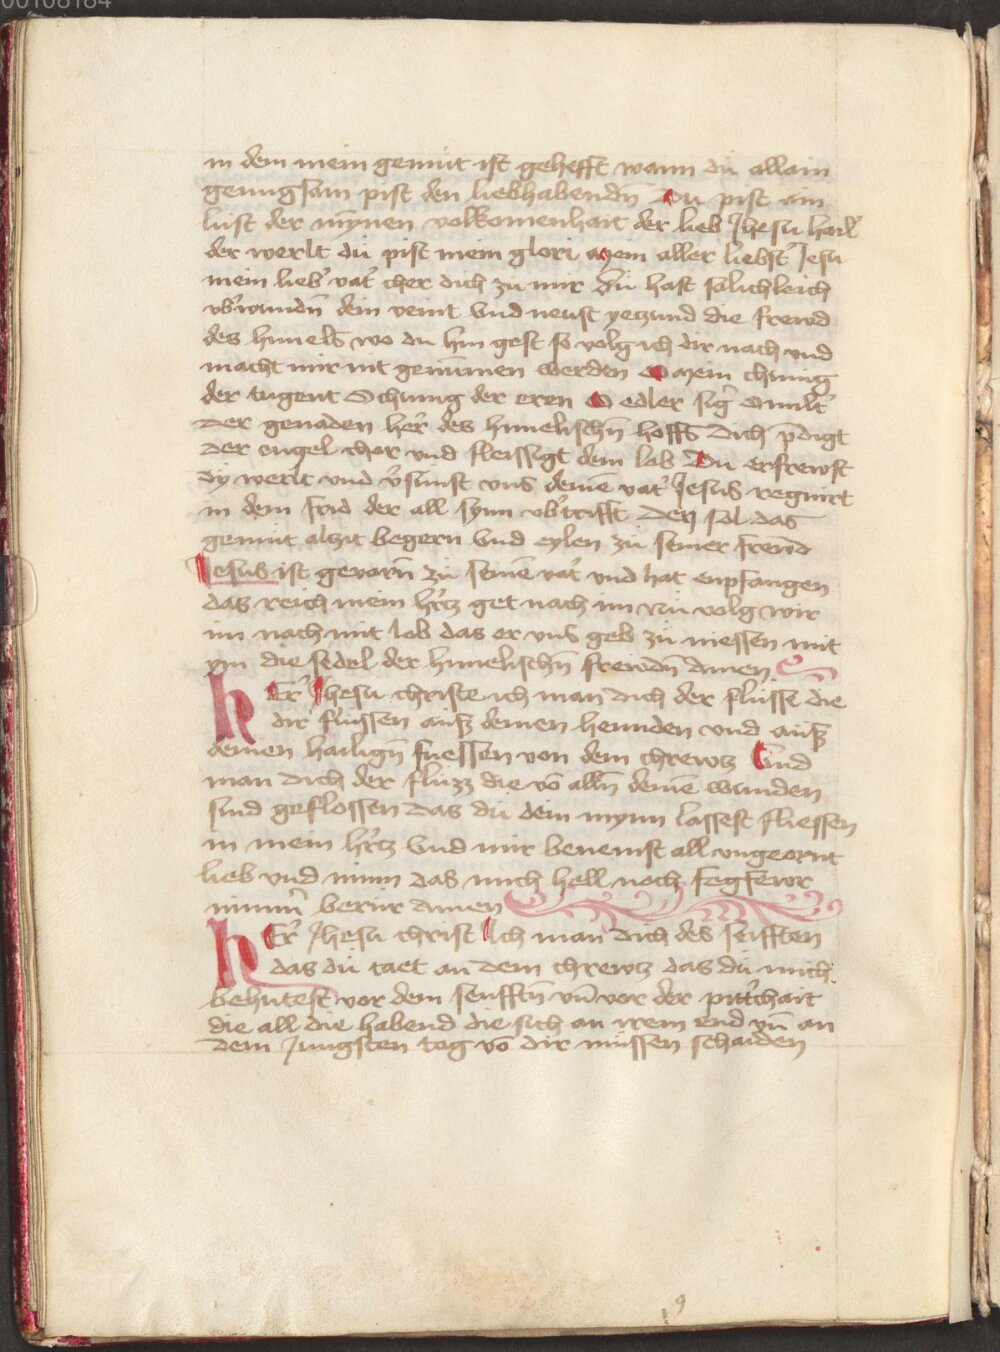 00108184
in dem mein gemüt ist gehefft wann du allain
genugsam pist den liebhabendn̄ Du pist ain
lust der mȳnen volkomenhait der lieb Jhesu hail
der werlt du pist mein glori Mein aller liebst' Jesu
mein lieb' vat' cher dich zu mir Du hast sälichleich
vb'wundn̄ dein veint Vnd neust yetzund die frewd
des himels wo du hin gest so volg ich dir nach vnd
macht mir nit genūmen werden O Mein chunig
der tugent O chunig der eren O edler sig' O milt'
der genaden her' des himelischn̄ hoffs Dich p̄digt
der engel chor vnd fleissigt dein lob Du erfrewst
dy werlt vnd v'sünst vns deinē vat' Jesus regnirt
in dem frid der all synn vb'trifft Den sol das
gemüt alzit begern Vnd eylen zu seiner frewd
Jesus ist gevarn̄ zu seinē vat' vnd hat enpfangen
das reich mein h'tz get nach im nu volg wir
im nach mit lob das er vns geb zu niessen mit
ym die sedel der himelischn̄ frewdn̄ Amen
hEr' Jhesu christe ich man dich der flüsse die
dir flussen ausz deinen hennden vnd ausz
deinen hailign̄ fuessen von dem chrewtz Vnd
man dich der fluzz die vō alln̄ deinē wunden
sind geflossen das du dein mynn lassest fliessen
in mein h'tz Vnd mir benemst all vngeornt
lieb vnd minn das mich hell noch fegfewr
nimm' berür Amen
hEr' Jhesu christ Ich man dich des seufften
das du taet an dem chrewtz das du mich
behutest vor dem seufftn̄ vn̄ vor der pitt'chait
die all die habend die sich an irem end vn̄ an
dem Jungsten tag vō dir müssen schaiden